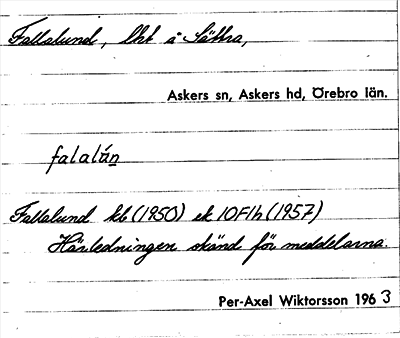 Fallalund, lht å Sättra,
Askers sn, Askers hd, Örebro län.
falalúṉ
Fallalund kb (1950) ek 10F1h (1957)
Härledningen okänd för meddelarna.
Per-Axel Wiktorsson 1963